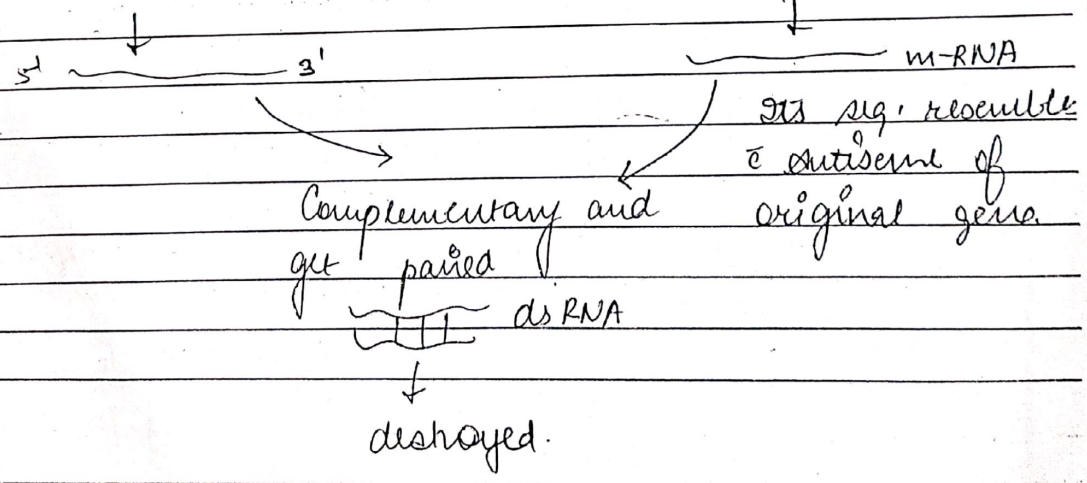 5' 3'
m-RNA
Its seq. resemble
c̄ antisense of
original gene.
Complementary and
get paired
ds RNA
destroyed.